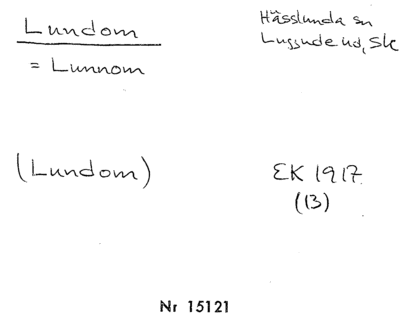 Lundom
= Lunnom
Hässlunda sn
Luggude hd, Sk
(Lundom)
EK 1917
(13)
Nr 15121